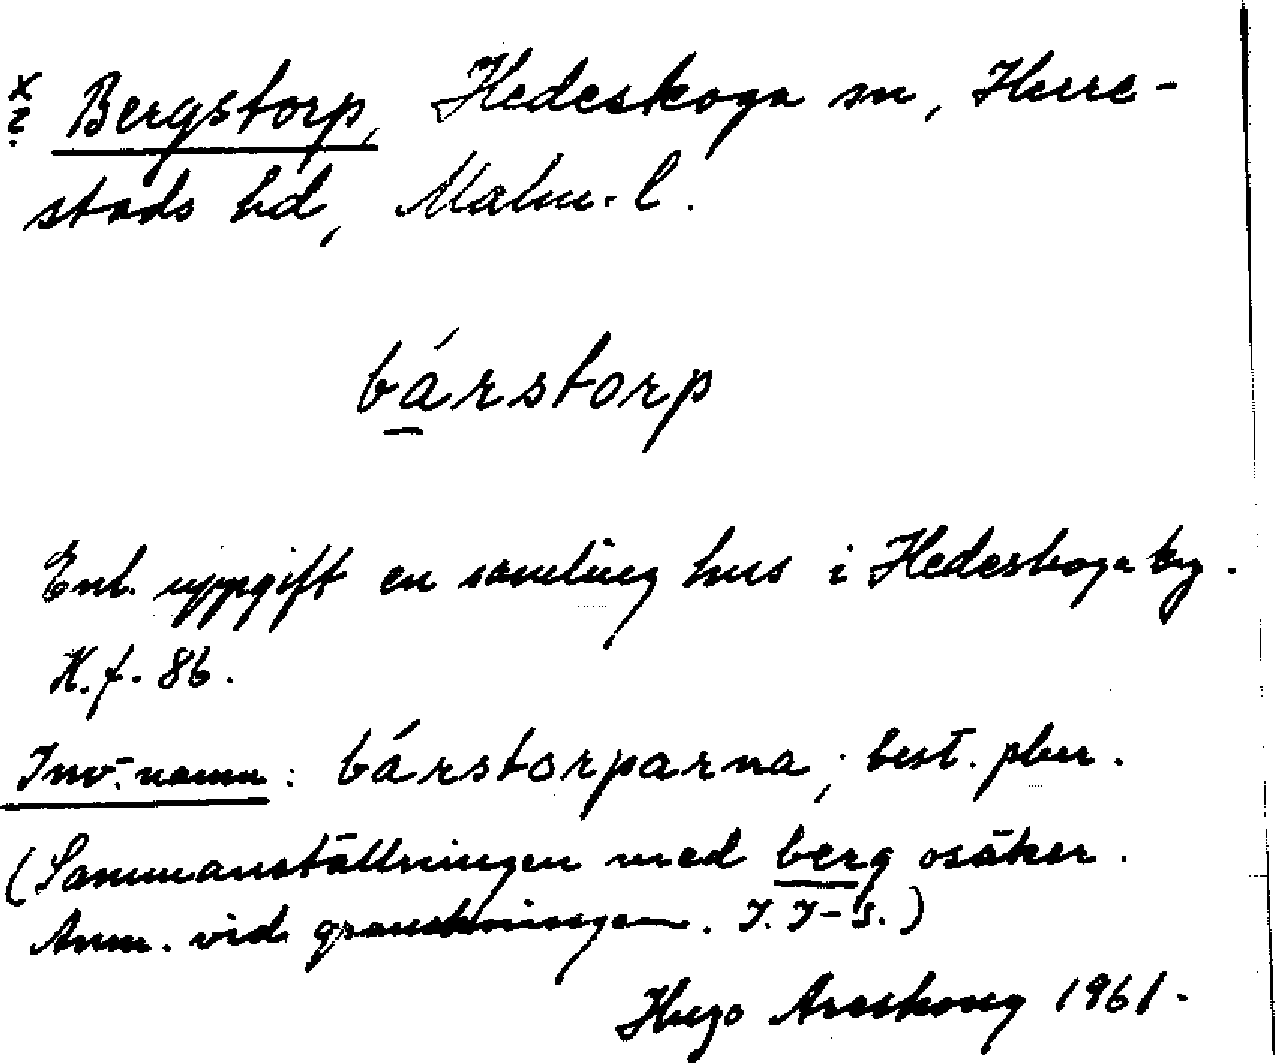 x
? Bergstorp, Hedeskoga sn, Herre-
stads hd, Malm. l.
bárstorp
Enl. uppgift en samling hus i Hedeskoga by.
H. f. 86.
Inv.-namn: bárstorparna, best. plur.
(Sammanställningen med berg osäker.
Anm. vid granskningen. I. I-S.)
Hugo Areskoug 1961.